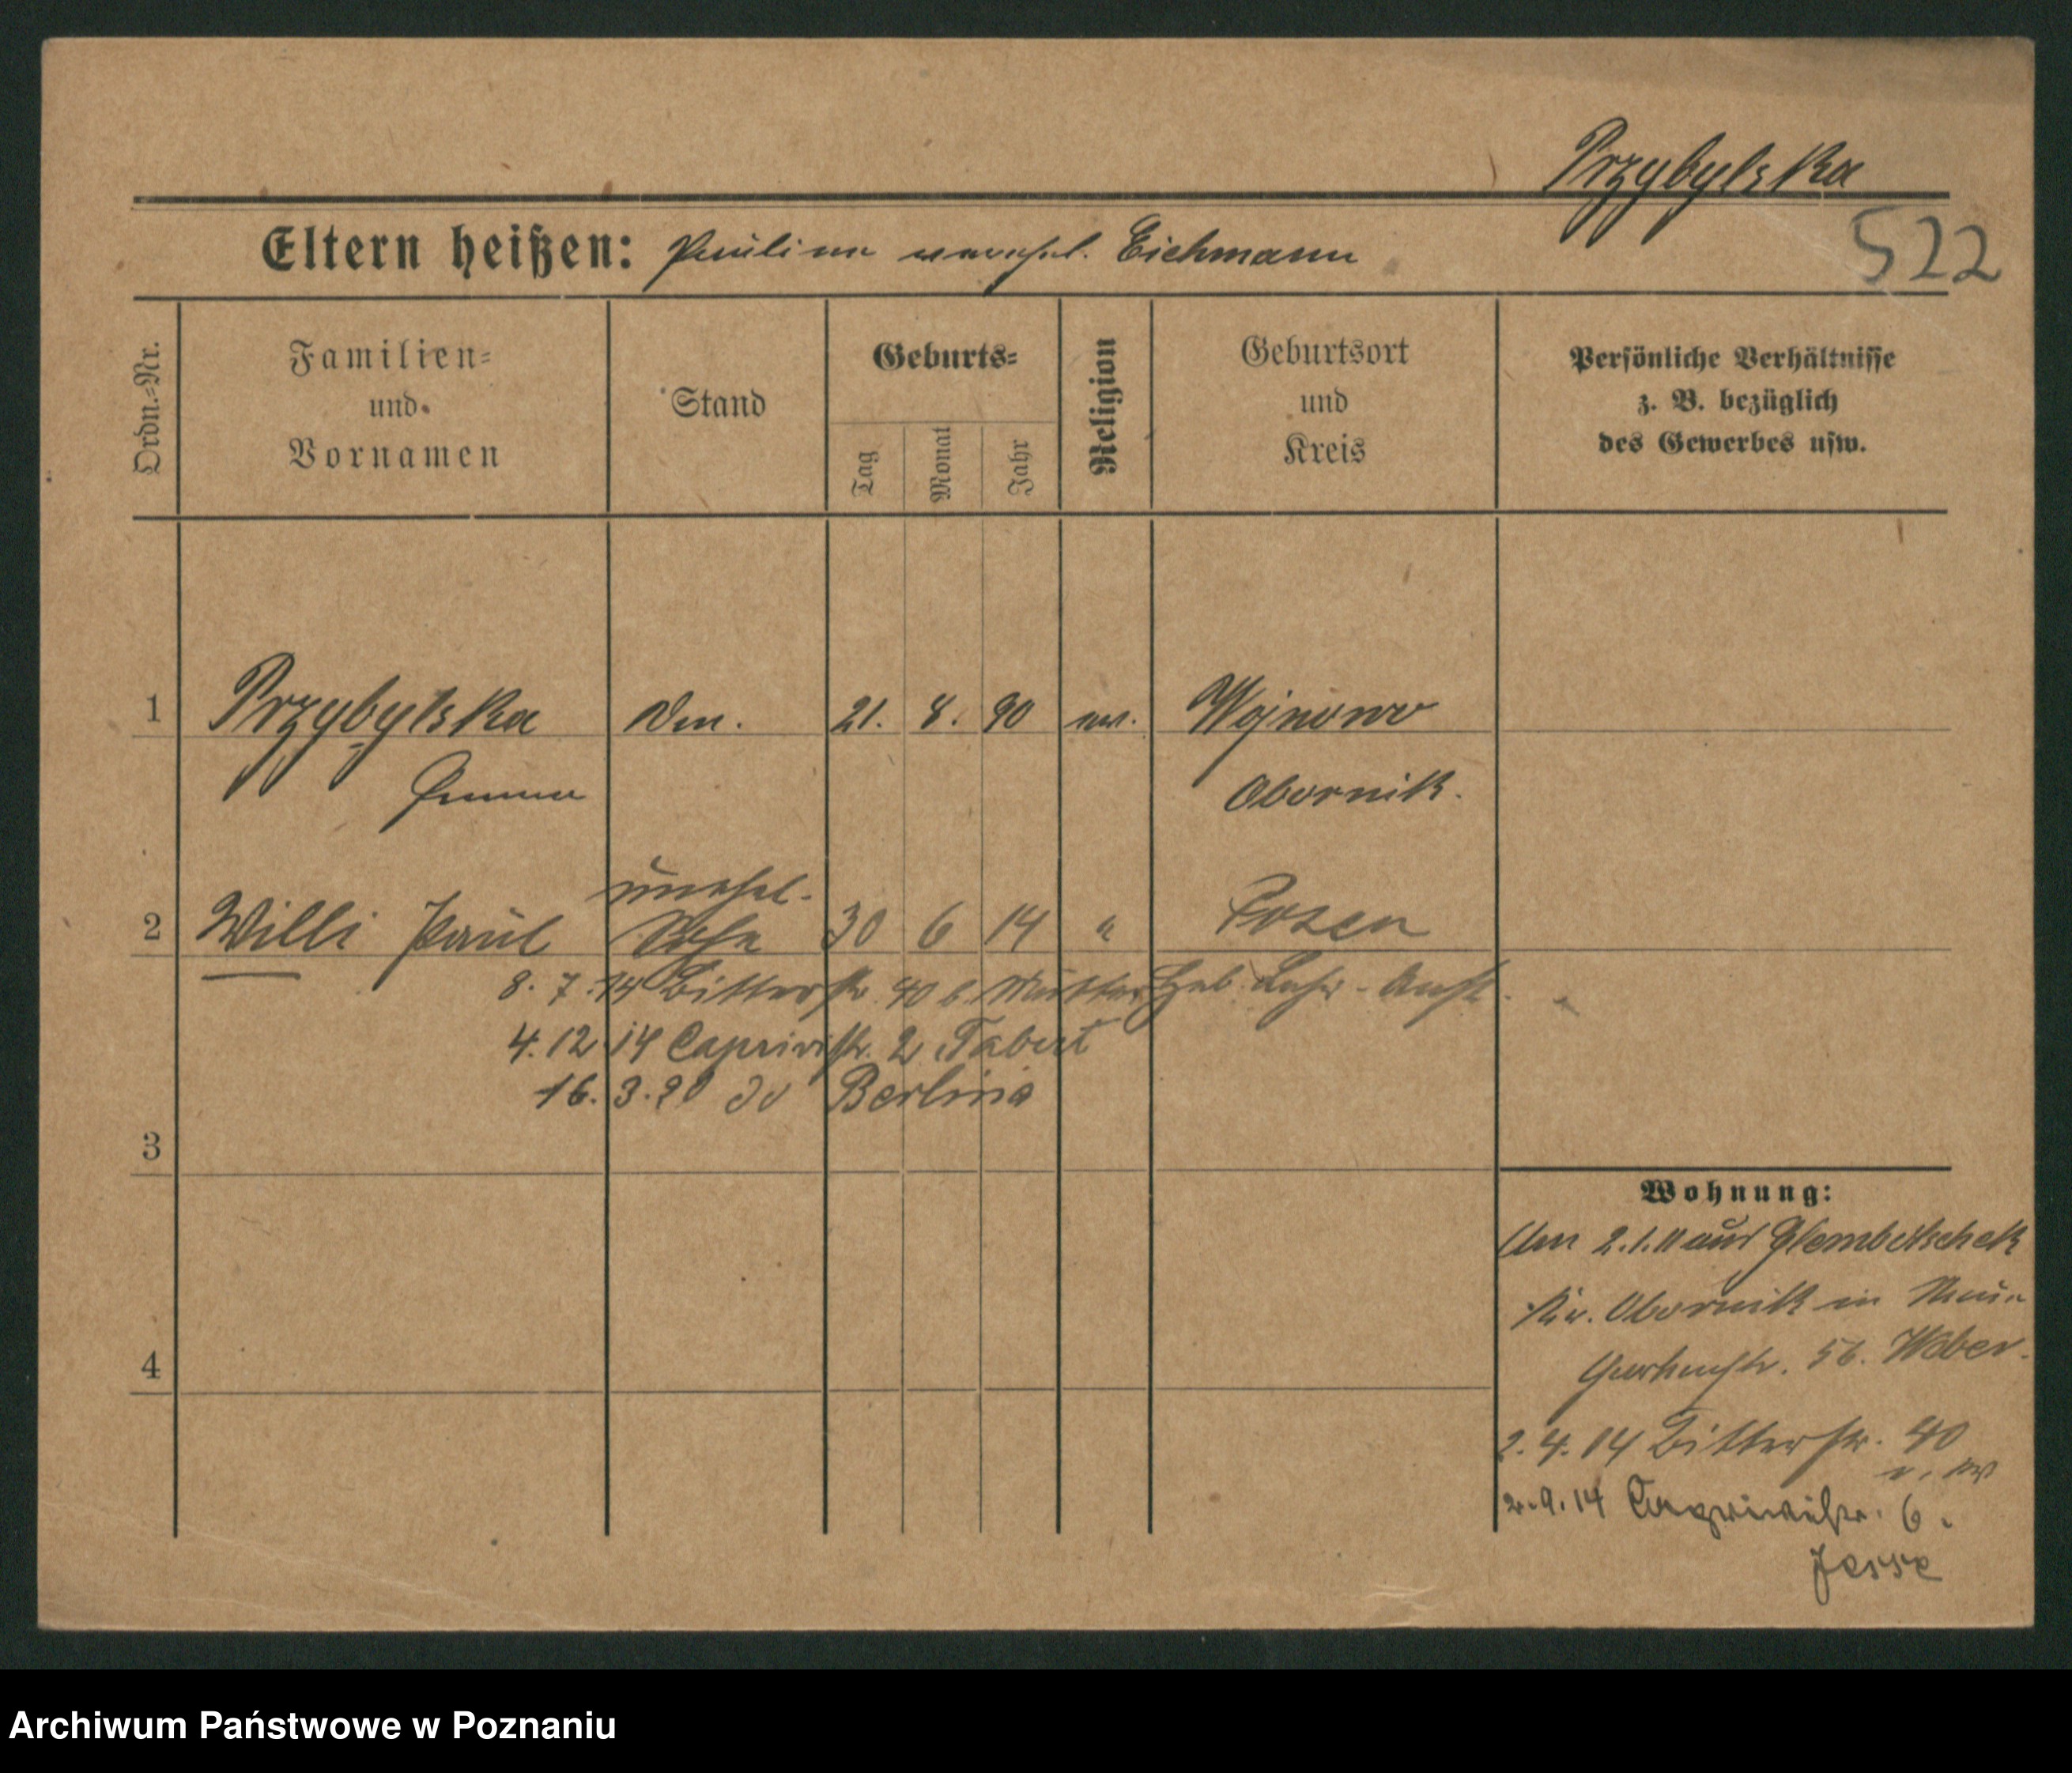 Przybylska
522
Eltern heißen: Pauline verehel. Eichmann
Ordn.=Nr.
Familien=
und
Vornamen
Stand
Geburts=
Tag
Monat
Jahr
Religion
Geburtsort
und
Kreis
Persönliche Verhältnisse
z. B. bezüglich
des Gewerbes usw.
1 Przybylska 21. 8. 90 ev. Wojnowo
Emma Obornik.
unehel.
2 Willi Paul Sohn 30 6 14 " Posen
8. 7. 14 Bitterstr. 40 b. Mutter Heb. Lehr-Anst.
4. 12 14 Caprivistr. 2 Tabert
16. 3. 20 do Berlinia
3
4
Wohnung:
Am 2.1.11 aus Glembotschek
Kr. Obornik in
56. Weber.
2. 4. 14 Bitterstr. 40
2. 9. 14 Caprivistr. 6.
Jesse
Archiwum Państwowe w Poznaniu